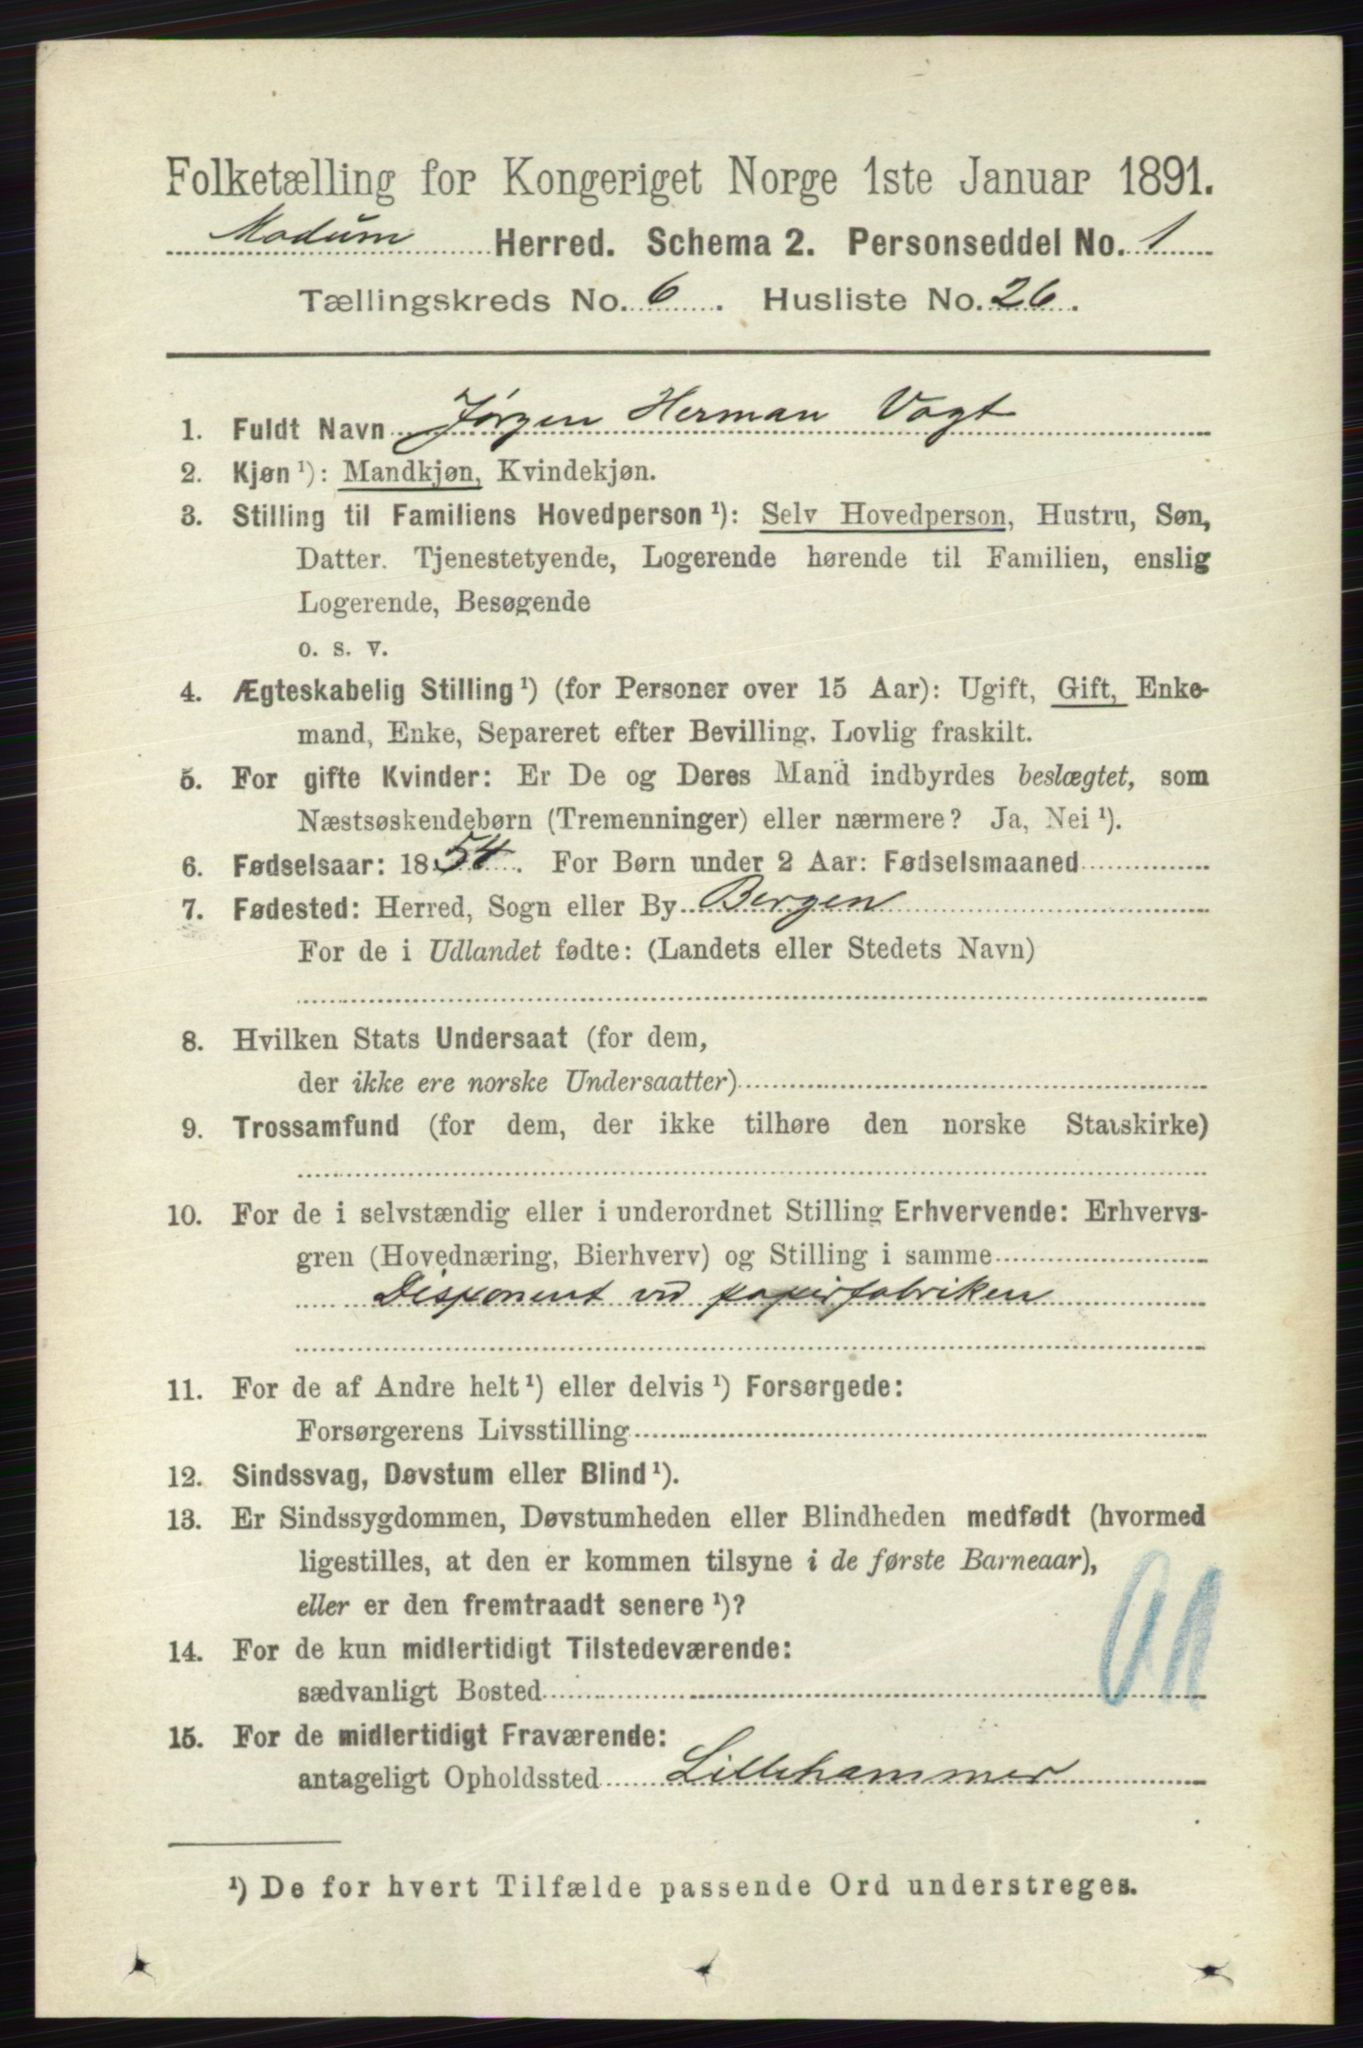 Folketælling for Kongeriget Norge 1ste Januar 1891.
Modum Herred. Schema 2. Personseddel No. 1
Tællingskreds No. 6. Husliste No. 26.
1. Fuldt Navn Jörgen Herman Vogt
2. Kjøn¹): Mandkjøn, Kvindekjøn.
3. Stilling til Familiens Hovedperson¹): Selv Hovedperson, Hustru, Søn,
Datter. Tjenestetyende, Logerende hørende til Familien, enslig
Logerende, Besøgende
o. s. v.
4. Ægteskabelig Stilling¹) (for Personer over 15 Aar): Ugift, Gift, Enke-
mand, Enke, Separeret efter Bevilling. Lovlig fraskilt.
5. For gifte Kvinder: Er De og Deres Mand indbyrdes beslægtet, som
Næstsøskendebørn (Tremenninger) eller nærmere? Ja, Nei¹).
6. Fødselsaar: 1854. For Børn under 2 Aar: Fødselsmaaned
7. Fødested: Herred, Sogn eller By Bergen
For de i Udlandet fødte: (Landets eller Stedets Navn)
8. Hvilken Stats Undersaat (for dem,
der ikke ere norske Undersaatter)
9. Trossamfund (for dem, der ikke tilhøre den norske Statskirke)
10. For de i selvstændig eller i underordnet Stilling Erhvervende: Erhvervs-
gren (Hovednæring, Bierhverv) og Stilling i samme
Disponent vd papirfabriken
11. For de af Andre helt¹) eller delvis¹) Forsørgede:
Forsørgerens Livsstilling
12. Sindssvag, Døvstum eller Blind¹).
13. Er Sindssygdommen, Døvstumheden eller Blindheden medfødt (hvormed
ligestilles, at den er kommen tilsyne i de første Barneaar),
eller er den fremtraadt senere¹)?
14. For de kun midlertidigt Tilstedeværende:
sædvanligt Bosted
15. For de midlertidigt Fraværende:
antageligt Opholdssted Lillehammer
¹) De for hvert Tilfælde passende Ord understreges.